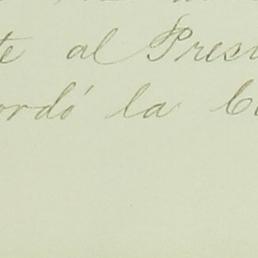 te al Presi
ordó la C